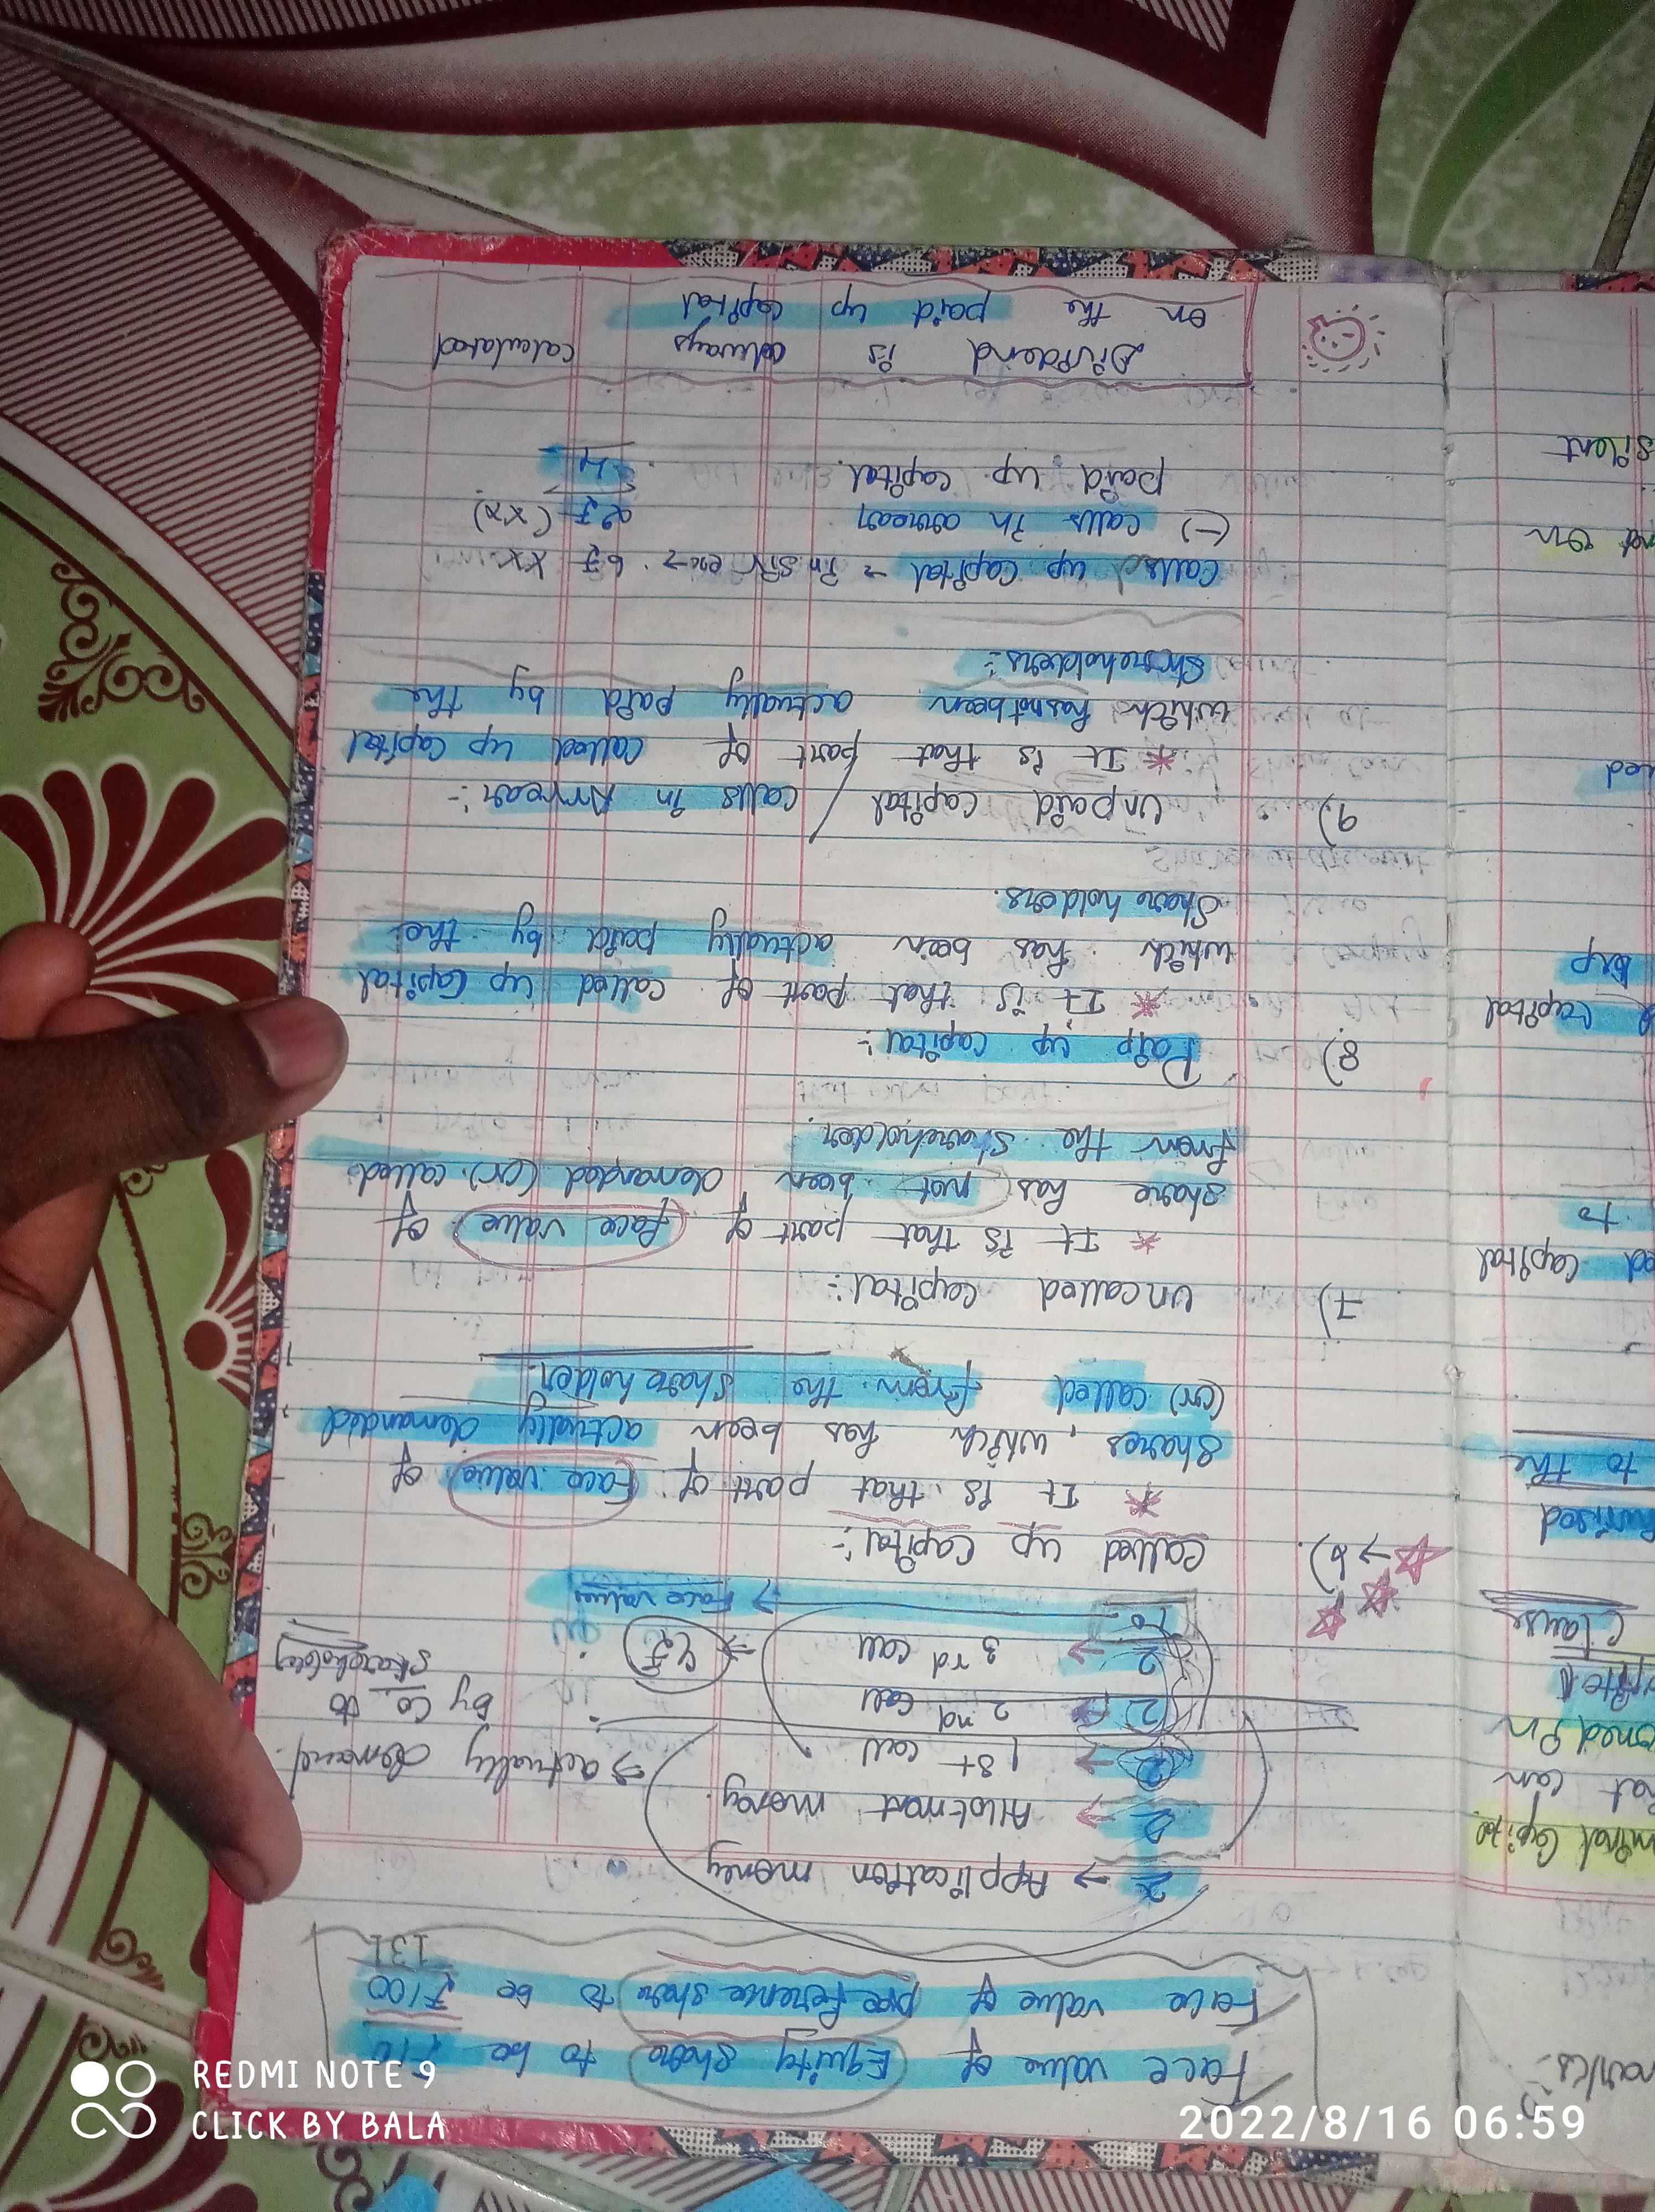 Face value of Equity share to be ₹10
Face value of preference share to be ₹100
131
2 → Application money
2 → Allotment money
2 → 1st call
→ actually demand
by Co. to
shareholders
2 → 2nd call
2 → 3rd call → 4₹
10 → Face value
→ 6). Called up capital :-
* It is that part of Face value of
shares, which has been actually demanded
(or) called from the shareholder.
7) uncalled capital :-
* It is that part of face value of
share has not been demanded (or) called
from the shareholder.
8) Paip up capital :-
* It is that part of called up capital
which has been actually paid by the
Share holders.
9) Unpaid capital / calls in Arrear :-
* It is that part of called up capital
which hasnotbeen actually paid by the
Shareholders :-
Called up capital → 6₹ xx
(-) calls in arrear 2₹ (xx)
paid up capital. 4
Dividend is always calculated
on the paid up capital
minal Capital
at can
Clause
to the
ed capital
to
Capital
silent
REDMI NOTE 9
CLICK BY BALA
2022/8/16 06:59